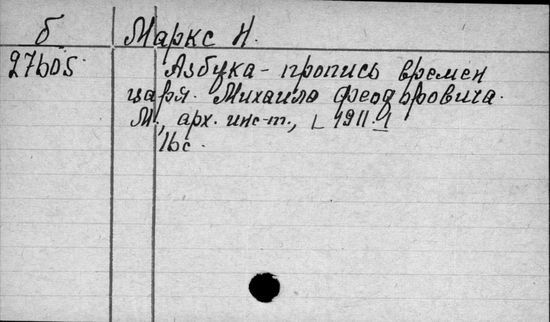 б Маркс Н.
27605 Азбука - пропись времен
царя Михаила Феодоровича.
М., арх. инс-т., [1911.]
16с.